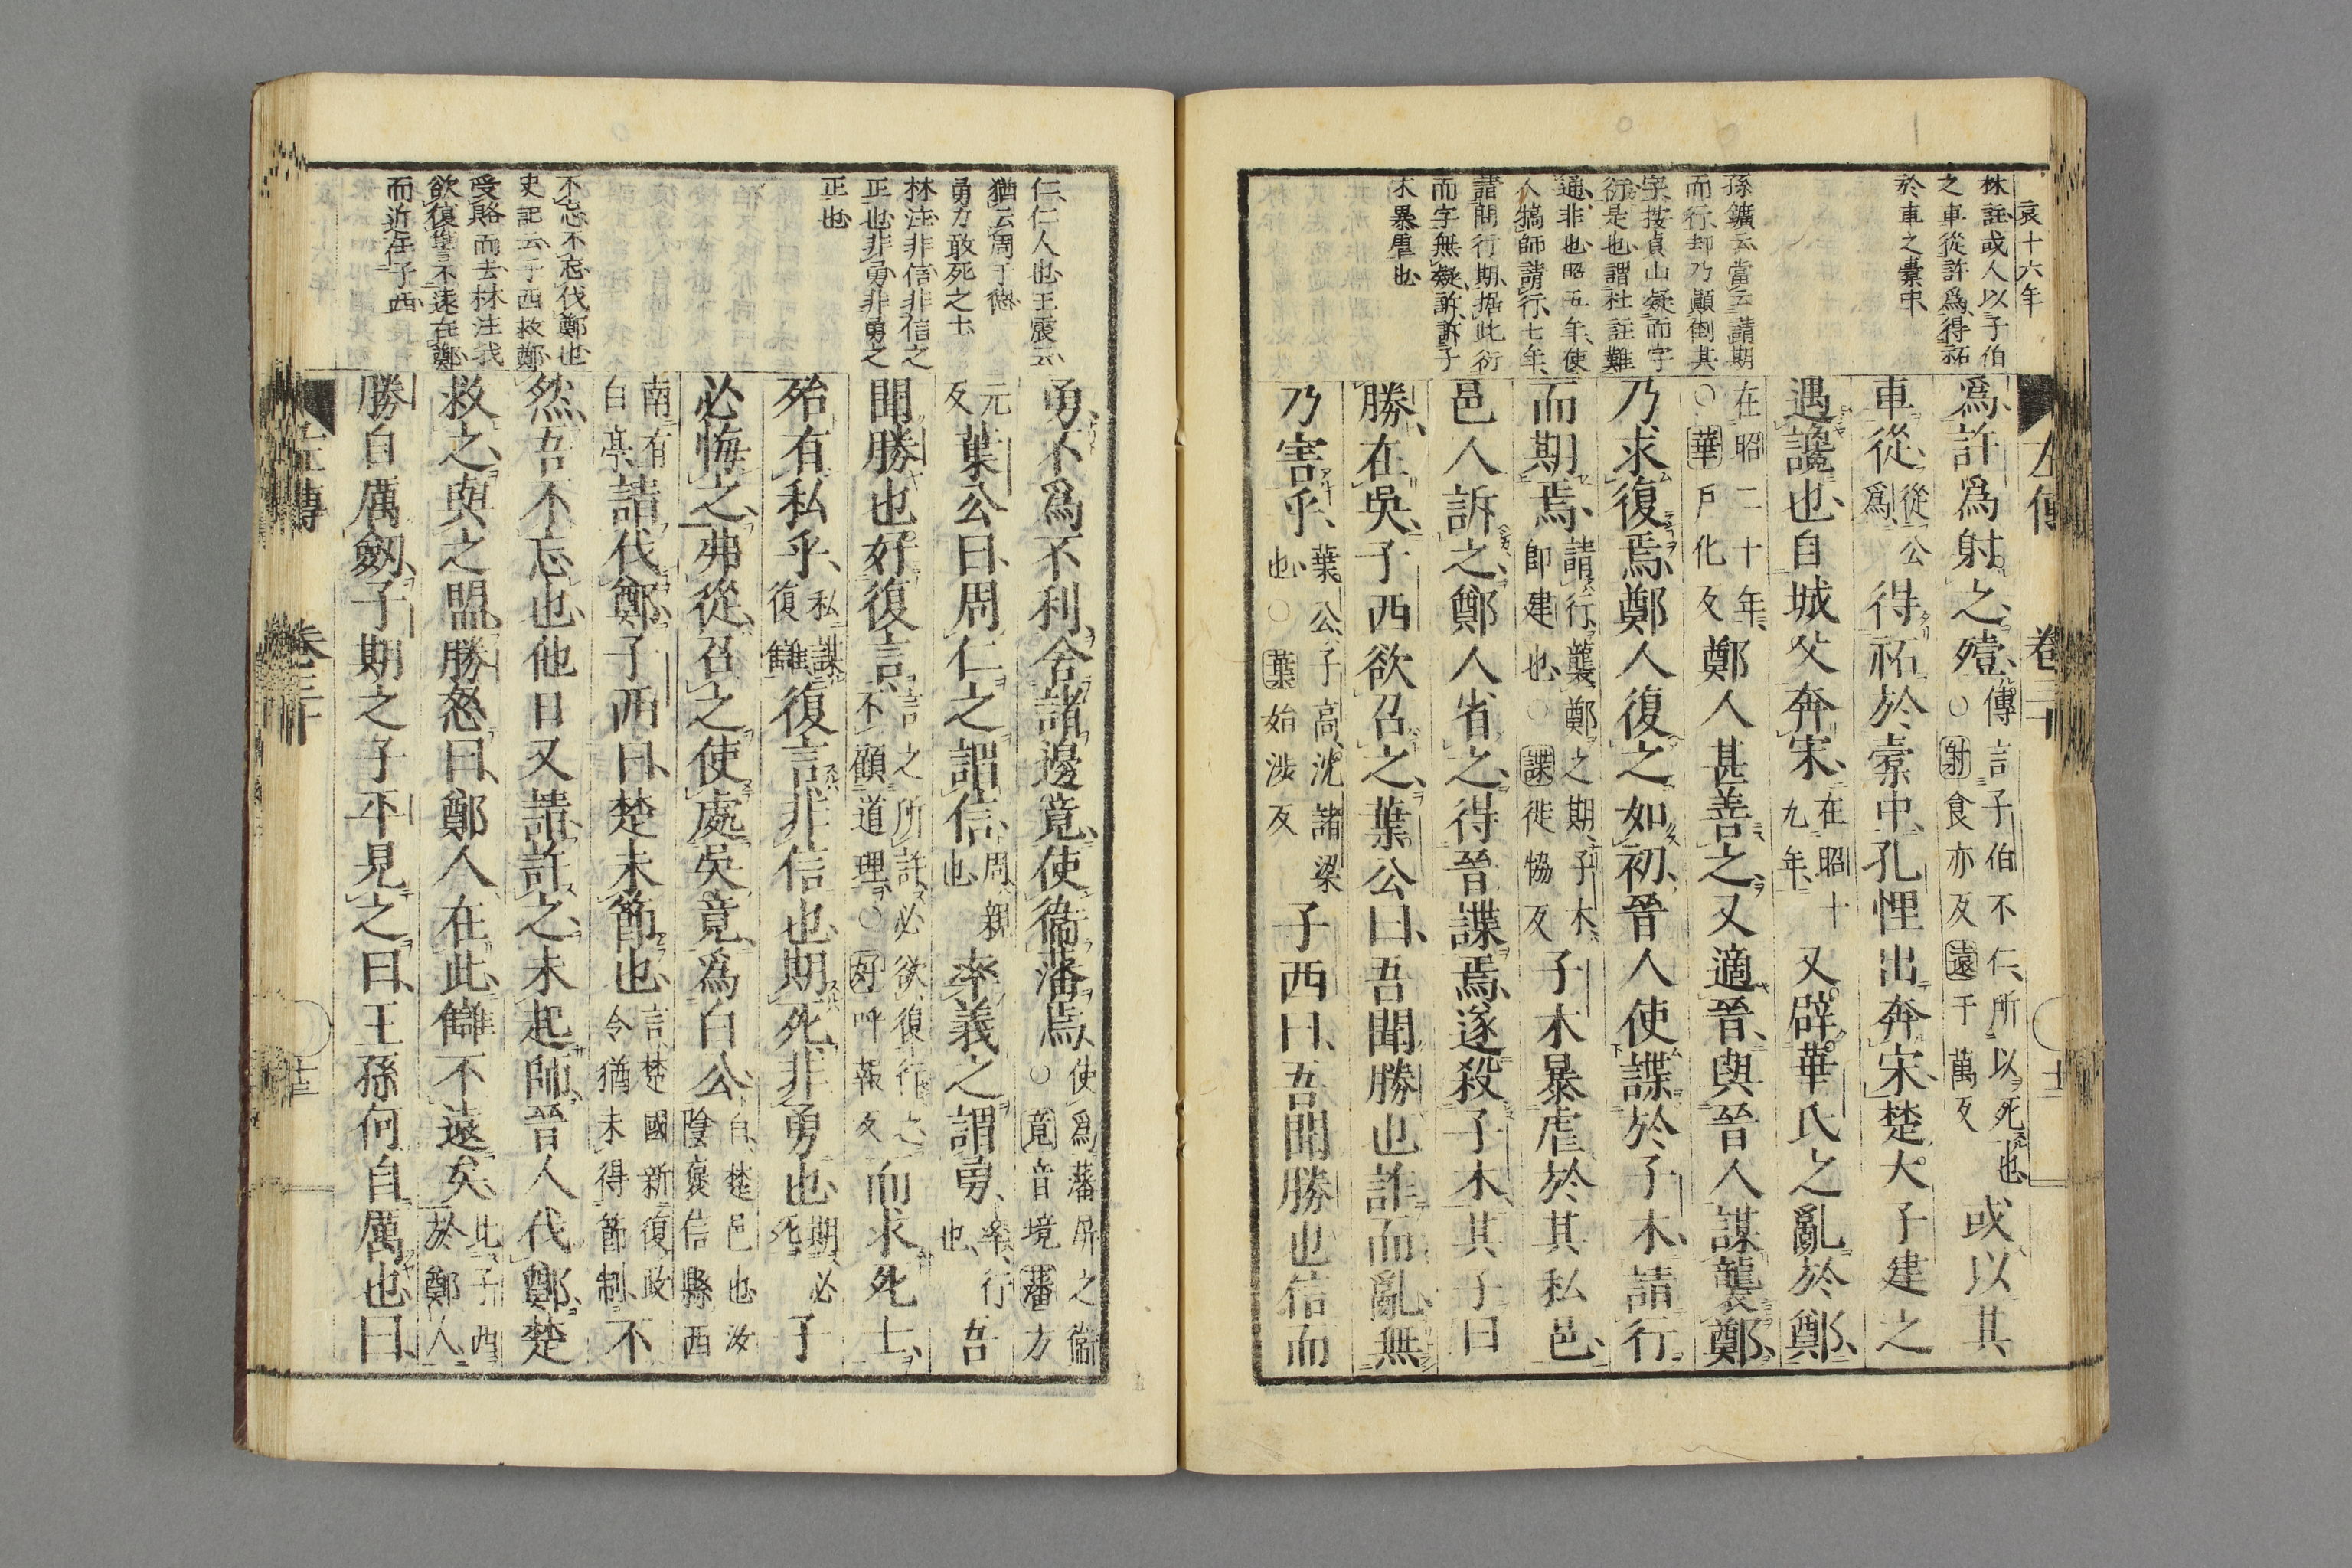 哀十六年
林註或人以子伯
之車從許爲得祏
於車之橐中
孫鑛云當云請期
而行却乃顚倒其
字按貞山疑而字
衍是也謂杜註難
通非也昭五年使
人犒師請行七年
諸問行期据此衍
而字無疑訴訴子
木暴虐也
左傳
卷三十
爲許爲射之殪傳言子伯不仁所以死也○射食亦反遠于萬反或以其
車從從公爲得祏於橐中孔悝出奔宋楚大子建之
遇讒也自城父奔宋在昭十九年又辟華氏之亂於鄭
在昭二十年○華戶化反鄭人甚善之又適晉與晉人謀襲鄭
乃求復焉鄭人復之如初晉人使諜於子木請行
而期焉請行襲鄭之期子木卽建也○諜徙協反子木暴虐於其私邑
邑人訴之鄭人省之得晉諜焉遂殺子木其子曰
勝在吳子西欲召之葉公曰吾聞勝也詐而亂無
乃害乎葉公子高沈諸梁也○葉始涉反子西曰吾聞勝也信而
仁仁人也王震云
猶云周于德
勇力敢死之士
林注非信非信之
正也非勇非勇之
正也
不忘不忘伐鄭也
史記云子西救鄭
受賂而去林注我
欲復讐不遠在鄭
而近在子西
勇不爲不利舍諸邊竟使衞藩焉使爲藩屏之衞○竟音境藩方
元反葉公曰周仁之謂信周親也率義之謂勇率行也吾
聞勝也好復言言之所許必欲復行之不顧道理○好呼報反而求死士
殆有私乎私謀復讎復言非信也期死非勇也期必死子
必悔之弗從召之使處吳竟爲白公白楚邑也汝陰褒信縣西
南有白亭請伐鄭子西曰楚未節也言楚國新復政令猶未得節制不
然吾不忘也他日又請許之未起師晉人伐鄭楚
救之與之盟勝怒曰鄭人在此讎不遠矣此子西於鄭人
勝自厲劒子期之子平見之曰王孫何自厲也曰
左傳
卷三十